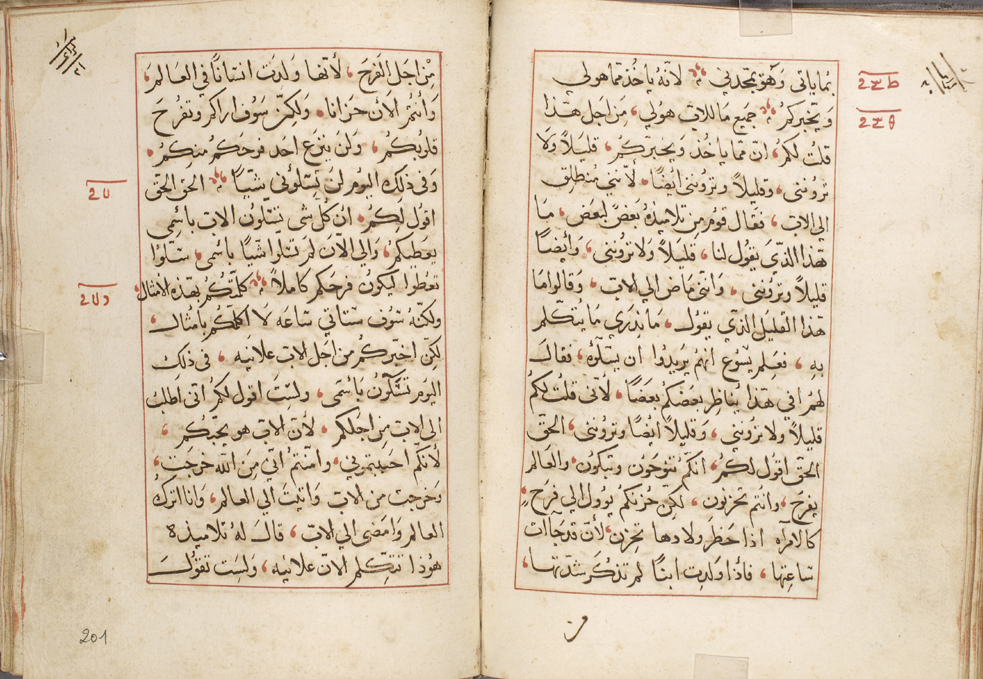 بماياتي وهو يمجدني لانه ياخذ مما هو لي
ويخبركم جميع ما للاب هو لي، من اجل هذا
قلت لكم، ان مما ياخذ ويخبركم، قليلاً ولا
تروننى، وقليلاً وتروننى ايضاً، لانني منطلق
الي الاب، فقال قوم من تلاميذه بعض لبعض، ما
هذا الذي يقول لنا، قليلاً ولا تروننى، وايضاً
قليلاً وتروننى، وانني ماض الي الاب، وقالوا ما
هذا القليل الذي يقول، ما ندري ما يتكلم
به، فعلم يسوع انهم يريدوا ان يسئلوه، فقال
لهم افي هذا يناظر بعضكم بعضاً، لاني قلت لكم
قليلاً ولا تروننى، وقليلاً ايضاً وتروننى، الحق
الحق اقول لكم، انكم تنوحون وتبكون، والعالم
يفرح، وانتم تحزنون، لكن حزنكم يوول الي فرح،
كالامراه اذا حظر ولادها تحزن، لان قد جات
ساعتها، فاذا ولدت ابناً لم تذكر شدتها،
من
من اجل الفرح، لانها ولدت انساناً في العالم،
وانتم الان حزانا، ولكن سوف اراكم وتفرح
قلوبكم، ولن ينزع احد فرحكم منكم،
وفي ذلك اليوم لن تسئلوني شياً الحق الحق
اقول لكم، ان كل شى تسئلون الاب باسمي
يعطيكم، والي الان لم تسئلوا شياً باسمي، سئلوا
تعطوا ليكون فرحكم كاملاً، كلمتكم بهذه الامثال،
ولكنه سوف ستاتي ساعه لا اكلمكم بامثال،
لكن اخبركم من اجل الاب علانيه، في ذلك
اليوم تسئلون باسمى، ولست اقول لكم اني اطلب
الي الاب من اجلكم، لان الاب هو يحبكم،
لانكم احببتموني، وامنتم اني من الله خرجت،
وخرجت من الاب واتيت الي العالم، وانا اترك
العالم وامضى الي الاب، قال له تلاميذه
هوذا تتكلم الان علانيه، ولست تقول
201